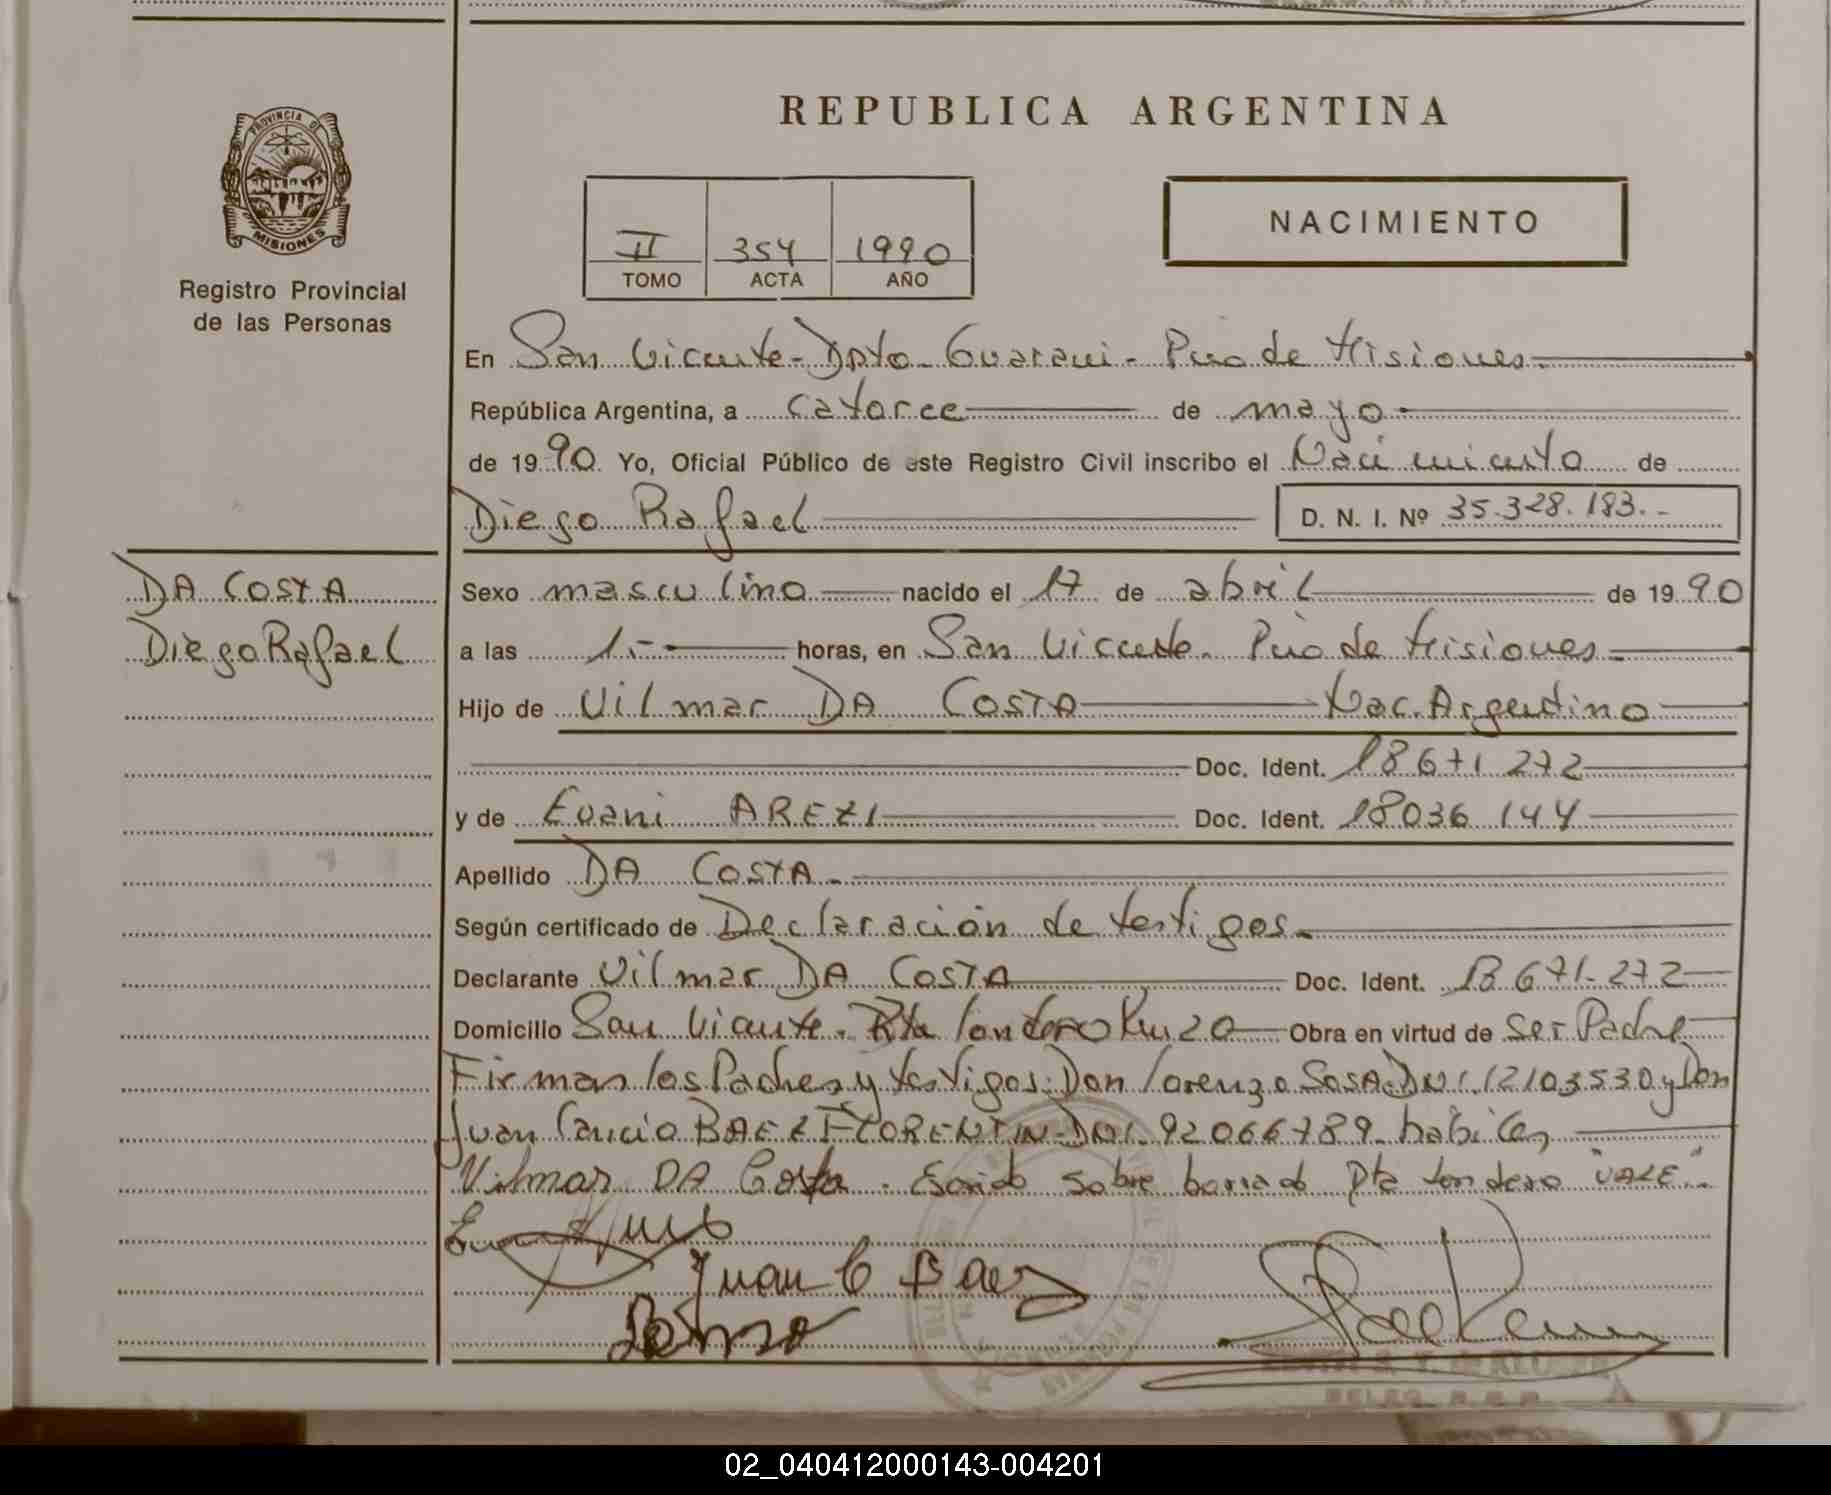 REPUBLICA ARGENTINA
PROVINCIA DE
MISIONES
Registro Provincial
de las Personas
II 354 1990
TOMO ACTA AÑO
NACIMIENTO
En San Vicente - Dpto - Guarani - Pcia de Misiones
República Argentina, a catorce de mayo
de 1990 Yo, Oficial Público de este Registro Civil inscribo el Nacimiento de
Diego Rafael D. N. I. Nº 35.328.183.-
DA COSTA
Diego Rafael
Sexo masculino nacido el 17 de abril de 1990
a las 1.- horas, en San Vicente. Pcia de Misiones
Hijo de Vilmar DA COSTA Nac. Argentino
Doc. Ident. 18 671 272
y de Evani Doc. Ident. 18036 144
Apellido DA COSTA
Según certificado de Declaración de testigos
Declarante Vilmar DA COSTA Doc. Ident. 18 671-272
Domicilio San Vicente - Km 20 Obra en virtud de ser Padre
Firman los Padres y testigos: Don Lorenzo SOSA DNI. 12103530 y Don
Juan BAEZ FLORENTIN - DNI. 92066789 habiles
Vilmar DA Costa . Escrido sobre borrado "VALE"
Juan C Baez
02_040412000143-004201